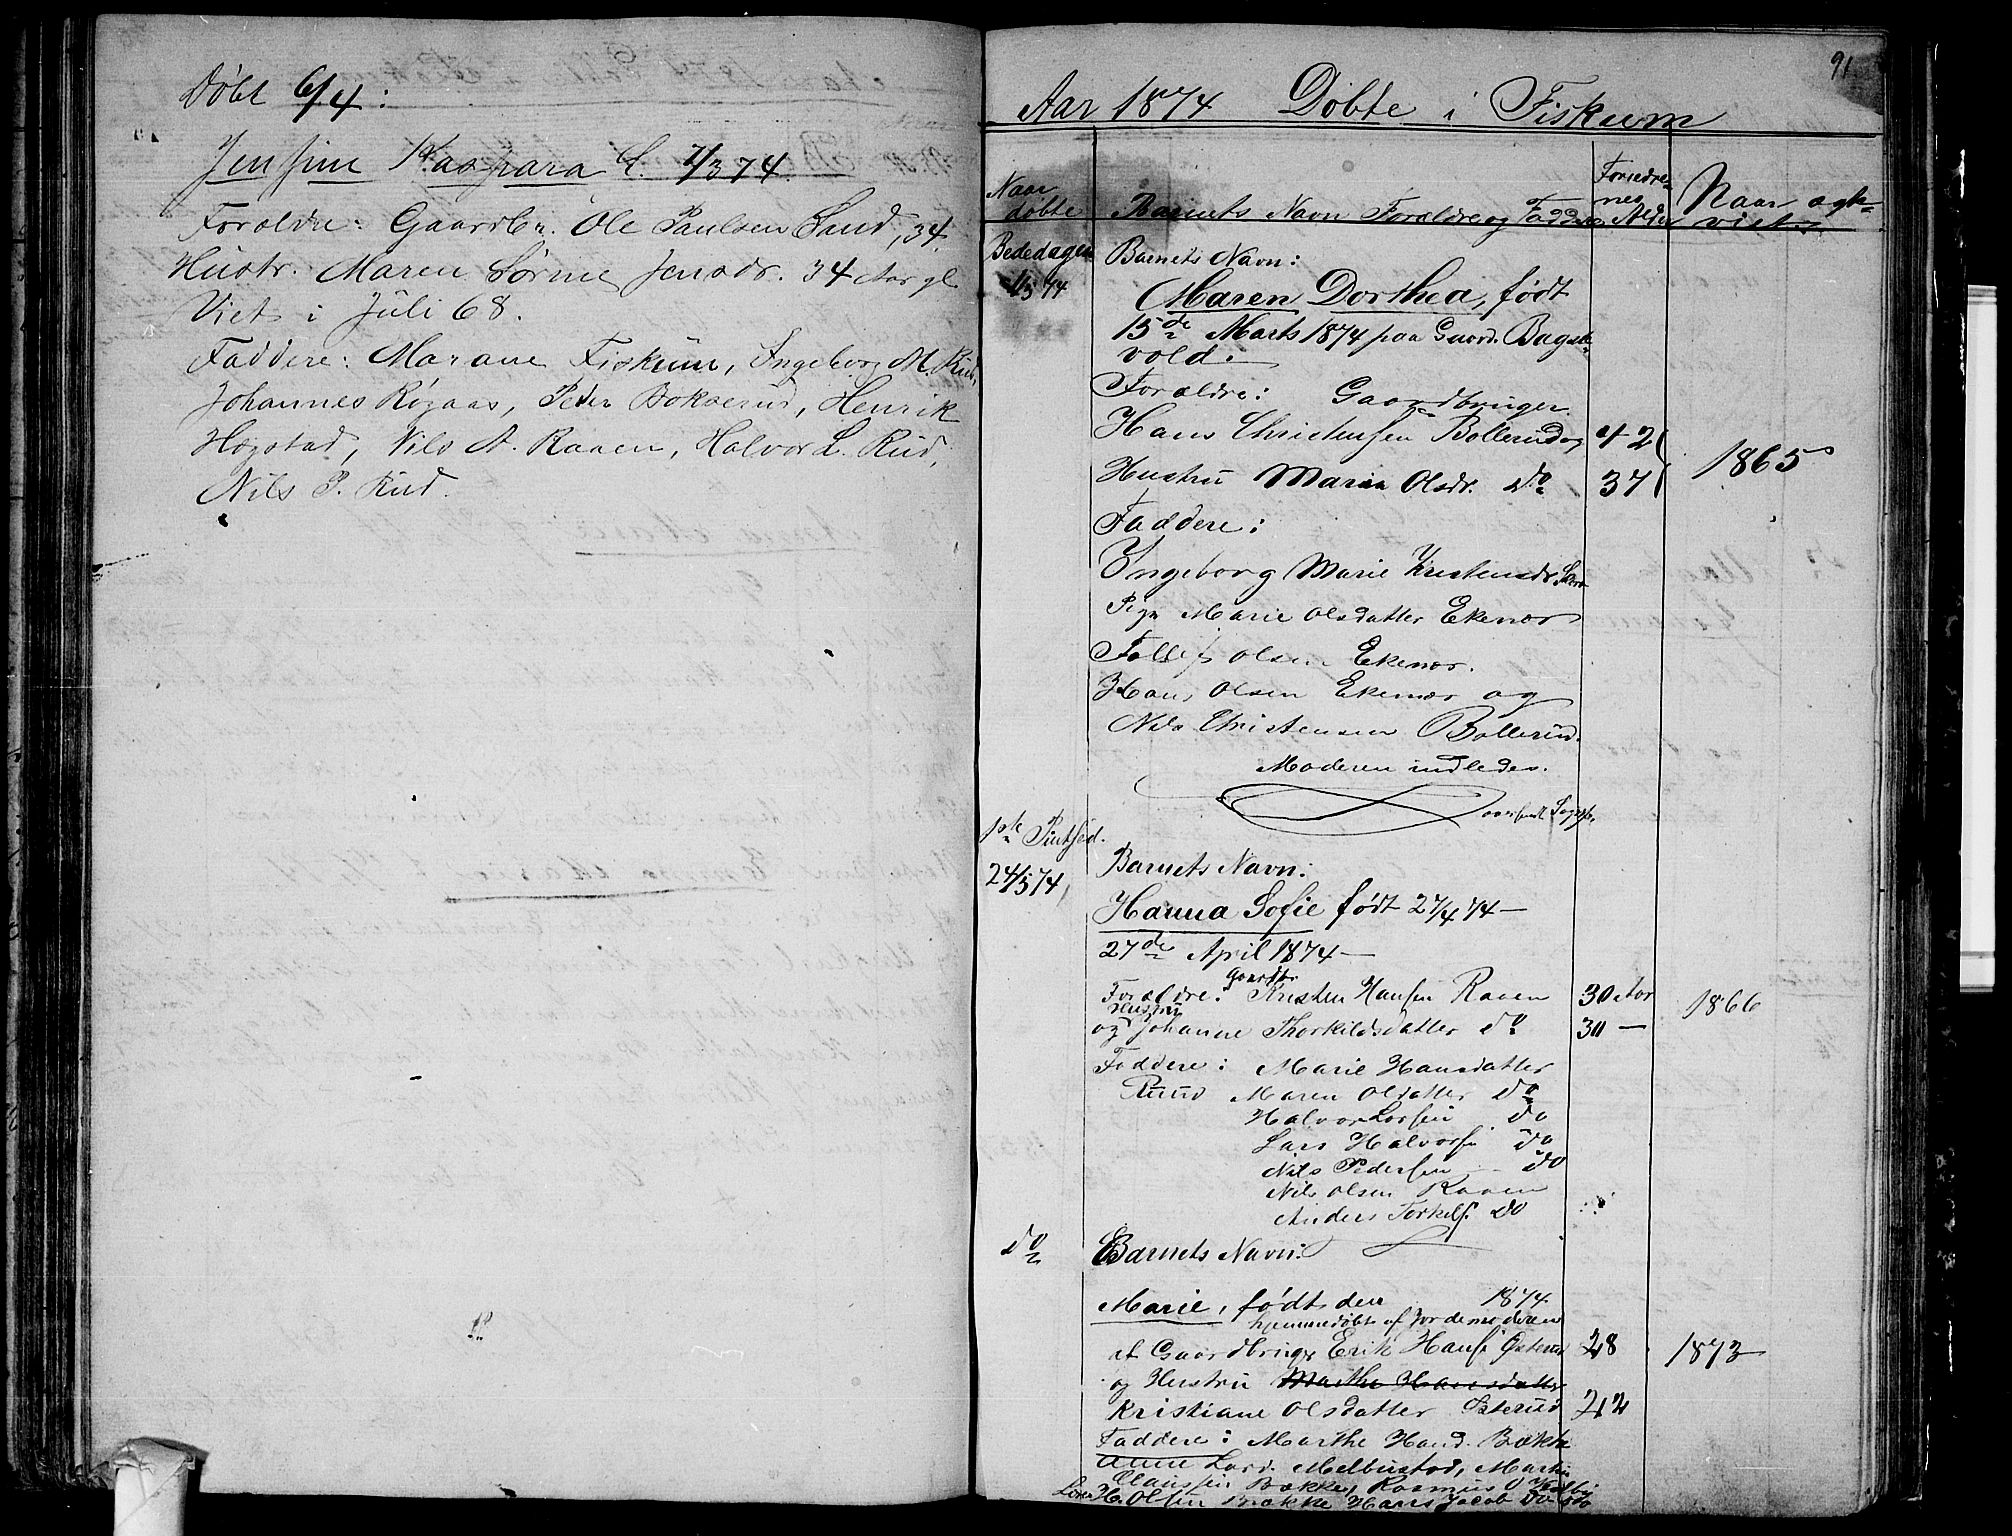 Døbt 6/4:
Jensine Kaspara f. 7/3 74.
Forældre: Gaardbr. Ole Paulsen Sand, 34.
Hustr. Maren Sørine Jensdr. 34 Aar gl.
Viet i Juli 68.
Faddere: Marane Fiskum, Ingeborg M. Rud,
Johannes Røgaas, Peter Bokserud, Henrik
Hogstad, Nils A. Raaen, Halvor L. Rud,
Nils P. Rud.
91.
Aar 1874 Døbte i Fiskum
Naar døbte
Barnets Navn Forældre og Faddre
Forældrenes Alder
Naar ægteviet.
Bededagen
1/5 74
Barnets Navn:
Maren Dorthea, født
15de Marts 1874 paa Gaard. Bagstevold.
Forældre: Gaardbruger
Hans Christensen Bollerud og 42
Hustru Maria Olsdr. do 37
1865
Faddere:
Ingeborg Marie Kristensdr.
Pige Marie Olsdatter Ekenær
Tollef Olsen Ekenær.
Hans Olsen Ekenær og
Nels Christensen Bollerud.
Moderen indledes.
1ste Pintsed.
24/5 74
Barnets Navn:
Hanna Sofie født 27/4 74 —
27de April 1874 —
Forældre: Gaardbr. Kristen Hansen Raaen 30 Aar
og Hustru Johanne Thorkildsdatter do 30 —
1866
Faddere: Marie Hansdatter
Ruud Maren Olsdatter do
Halvor Larsen do
Lars Halvorsen do
Nils Pedersen — do
Nils Olsen Raaen
Anders Torkels. do
do
Barnets Navn:
Marie, født den 1874
hjemmedøbt af Jordemoderen
af Gaardbruger Erik Hans. Østerud 28
1873
og Hustru Marthe Hansdatter
Kristiane Olsdatter Østerud 22
Faddere: Marthe Hansd. Bække
Anne Larsd. Melbustad, Martin
Clausen Bække, Rasmus O
H. Olsen Bække Hans Jacob do